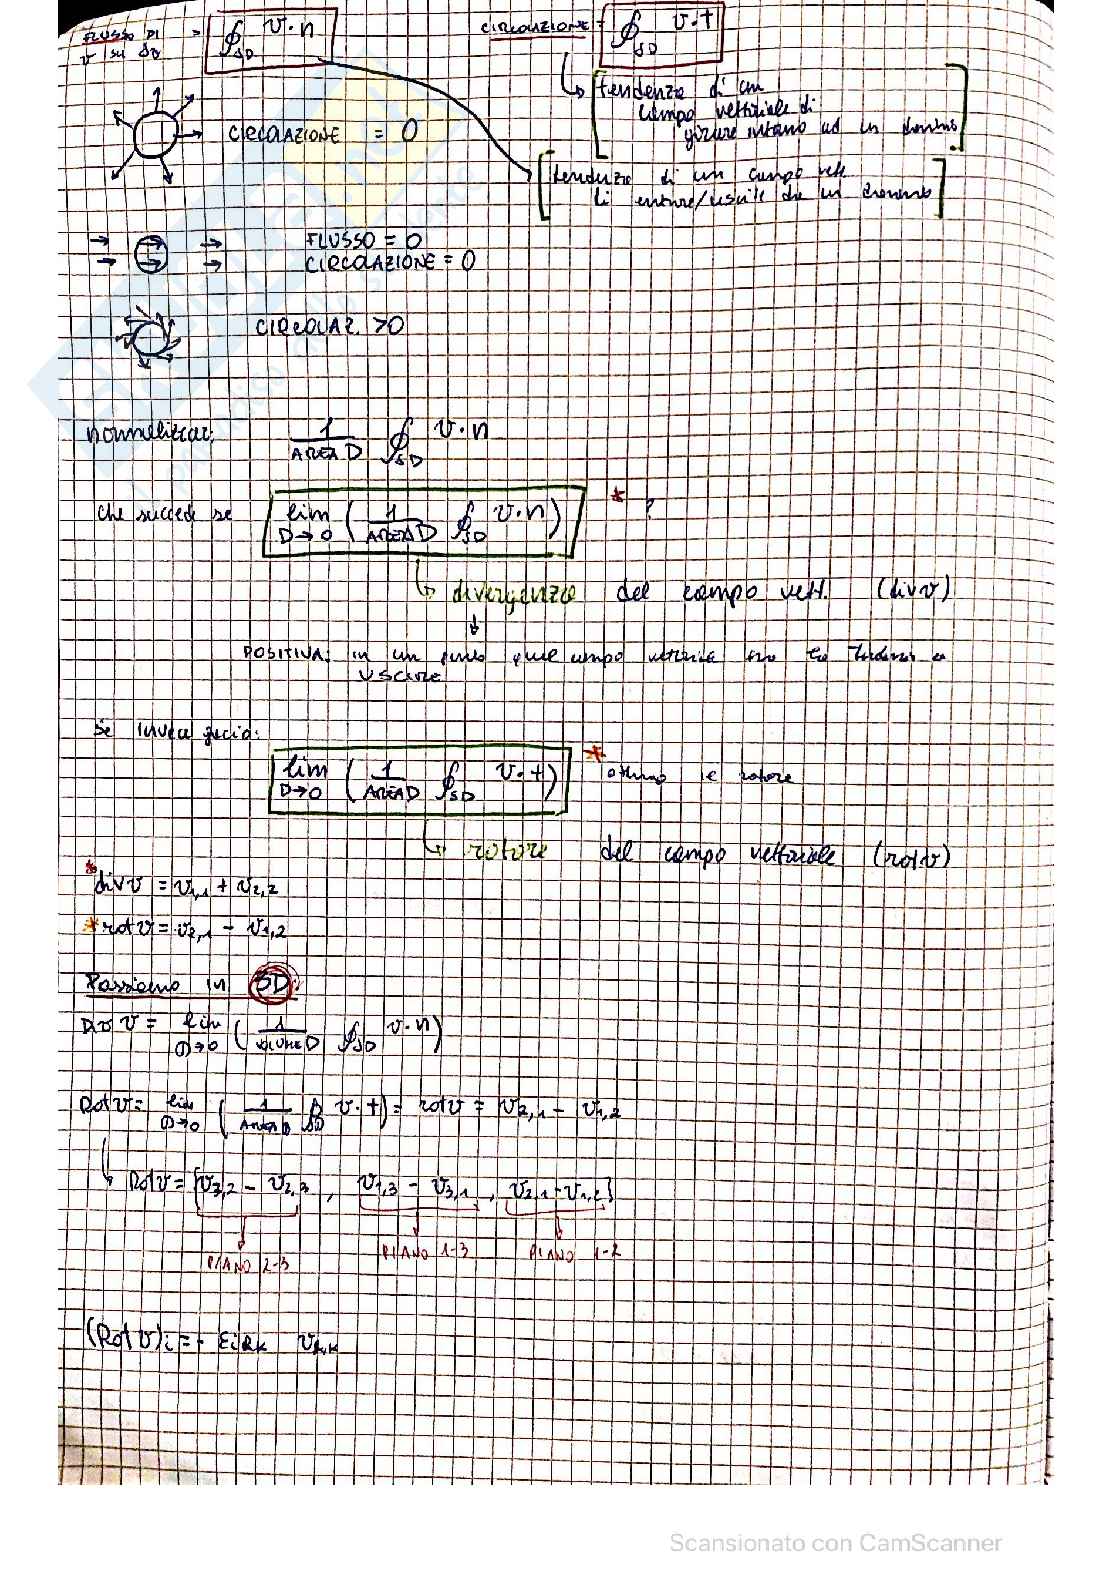 FLUSSO DI v su δD = ∮δD v·n
CIRCOLAZIONE = ∮δD v·t
tendenza di un
campo vettoriale di
girare intorno ad un dominio
CIRCOLAZIONE = 0
tendenza di un campo vett.
di entrare/uscire da un dominio
FLUSSO = 0
CIRCOLAZIONE = 0
CIRCOLAZ. >0
1/AREA D ∮δD v·n
che succede se lim D→0 (1/AREA D ∮δD v·n) * ?
divergenza del campo vett. (div v)
POSITIVA: in un campo
USCIRE
Se invece faccio:
lim D→0 (1/AREA D ∮δD v·t) * rotore
rotore del campo vettoriale (rot v)
* div v = v1,1 + v2,2
* rot v = v2,1 - v1,2
Passiamo in 3D:
Div v = lim D→0 (1/VOLUME D ∮δD v·n)
Rot v = lim D→0 (1/AREA D ∮δD v·t) = rot v = v2,1 - v1,2
Rot v = {v3,2 - v2,3 , v1,3 - v3,1 , v2,1 - v1,2}
PIANO 2-3 PIANO 1-3 PIANO 1-2
(Rot v)i = - εijk vj,k
Scansionato con CamScanner